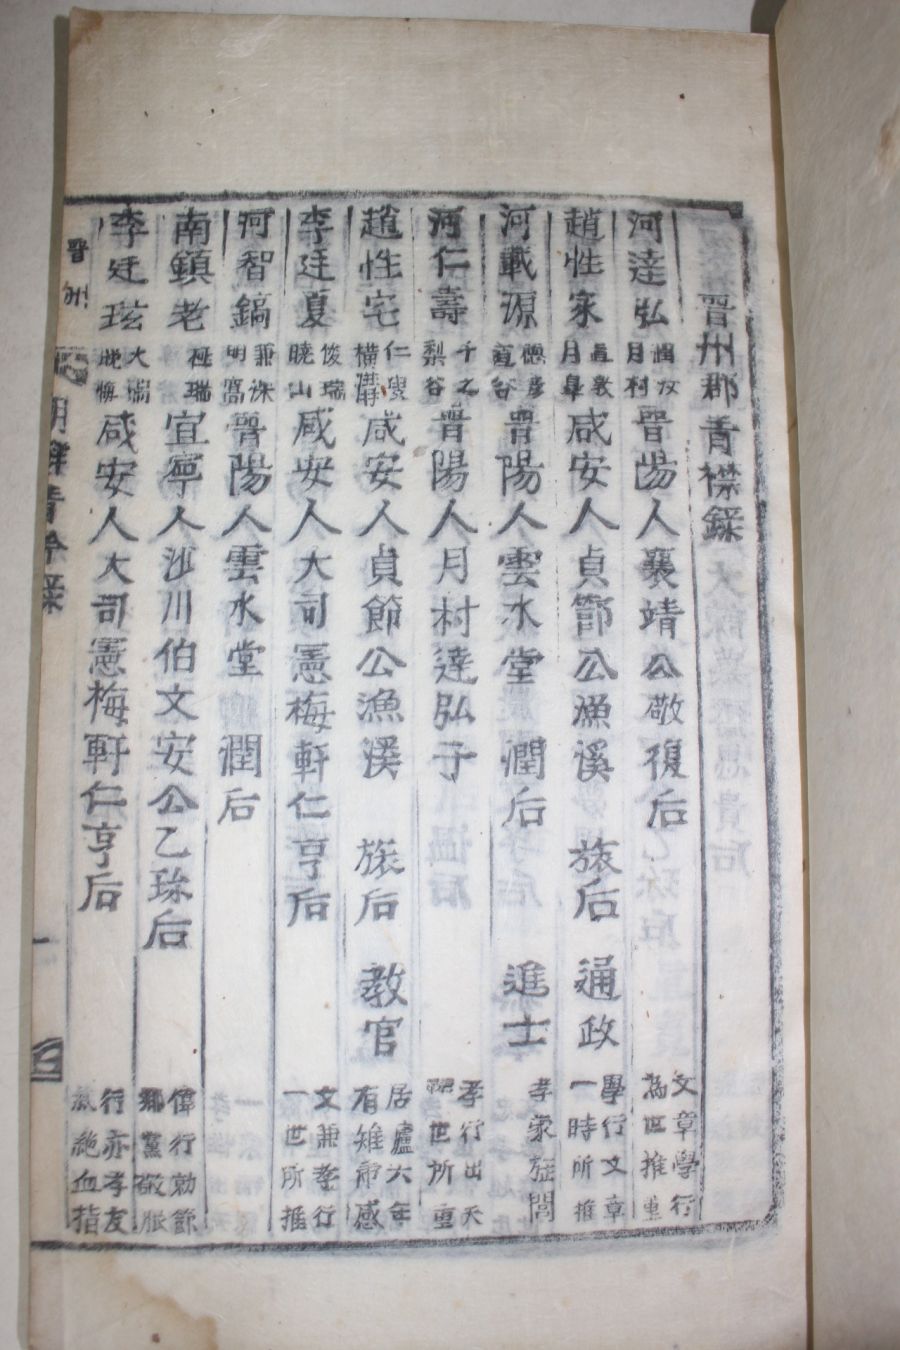 晋州郡青襟錄
河達弘 潤汝 月村 晋陽人襄靖公敬復后 文章學行 為世推重
趙性家 直敎 月皐 咸安人貞節公漁溪 族后 通政 學行文章 一時所推
河載源 晋陽人雲水堂 潤后 進士 孝家旌閭
河仁壽 千之 梨谷 晋陽人月村達弘子 孝行出天 世所重
趙性宅 仁叟 橫溝 咸安人貞節公漁溪 族后 教官 居廬六年 有雉虎感
李廷夏 俊瑞 曉山 咸安人大司憲梅軒仁亨后 文兼孝行 一世所推
河智鎬 兼洙 明窩 晋陽人雲水堂 潤后
南鎮老 極瑞 宜寧人沙川伯文安公乙珍后 偉行勍節 鄕黨敬服
李廷玹 大瑞 晚梅 咸安人大司憲梅軒仁亨后 行亦孝友 氣絶血指
晋州
青衿錄
一